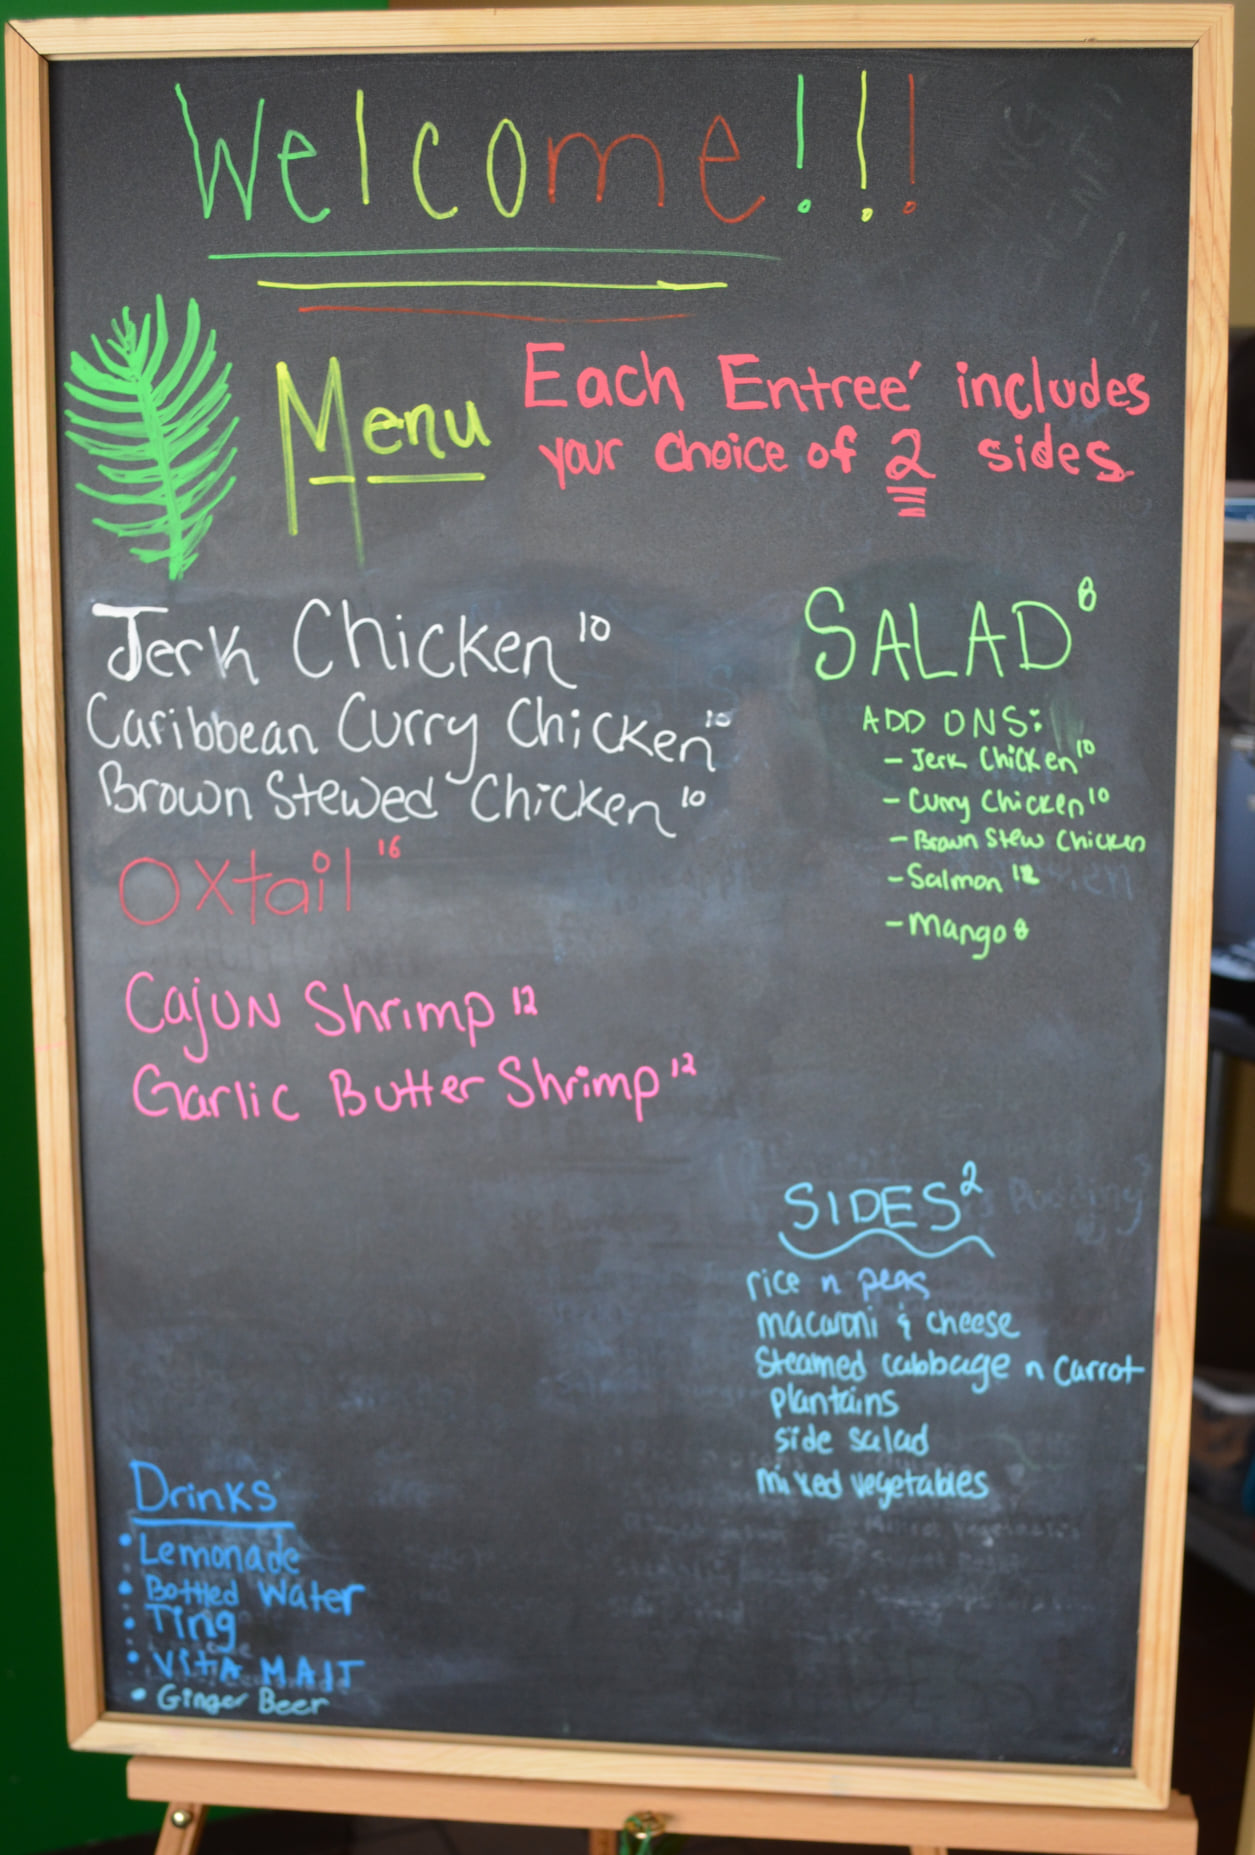 Welcome!!!
Menu
Each Entree' includes
your choice of 2 sides
Jerk Chicken 10
Caribbean Curry Chicken 10
Brown Stewed Chicken 10
Oxtail 16
Cajun Shrimp 12
Garlic Butter Shrimp 12
SALAD 8
ADD ONS:
- Jerk Chicken 10
- Curry Chicken 10
- Brown Stew Chicken
- Salmon 12
- Mango 8
SIDES 2
rice n peas
macaroni & cheese
Steamed cabbage n carrot
plantains
side salad
mixed vegetables
Drinks
• Lemonade
• Bottled Water
• Ting
• VitA MAlT
• Ginger Beer